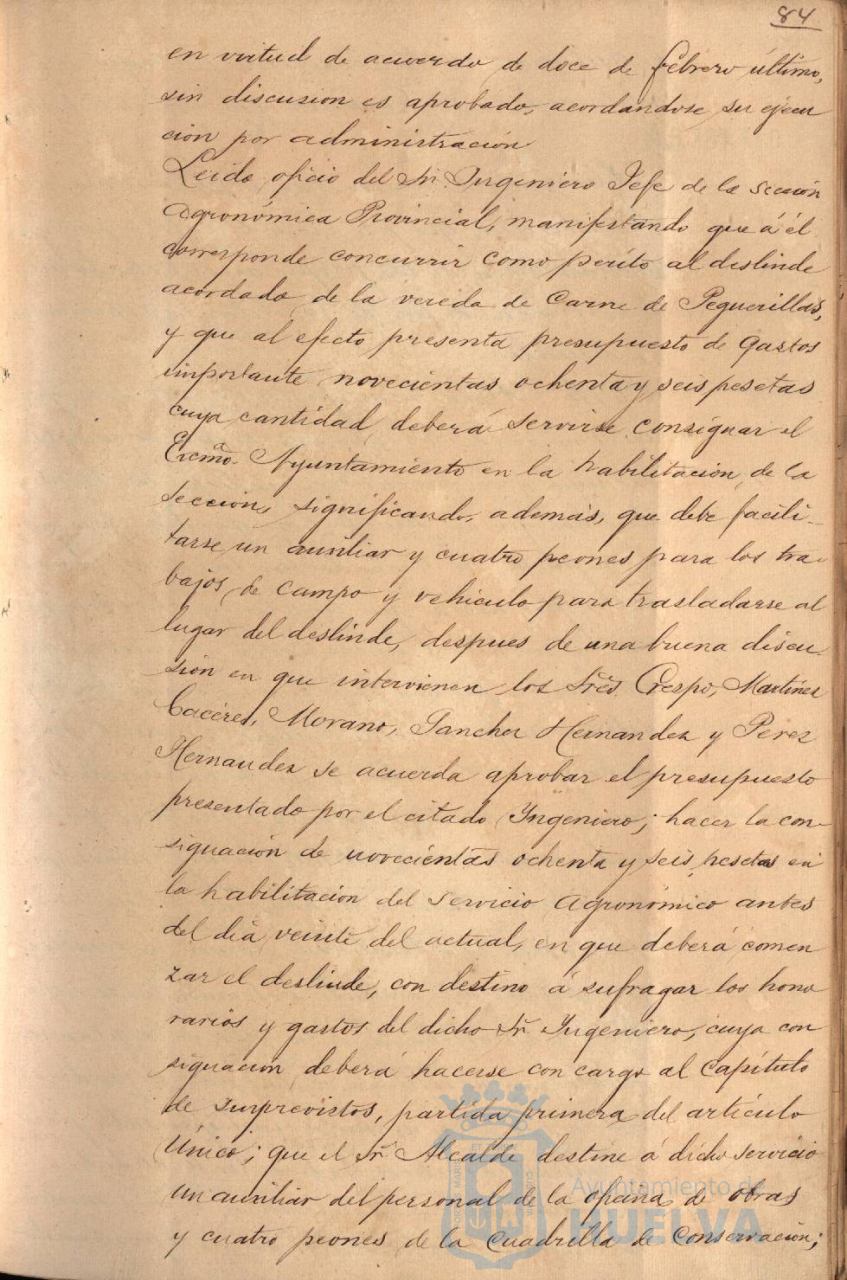 84
en virtud de acuerdo de doce de febrero último,
sin discusion es aprobado, acordandose su ejecu
cion por administración
Leido oficio del Sr. Ingeniero Jefe de la sección
Agronómica Provincial, manifestando que á él
corresponde concurrir como perito al deslinde
acordado de la vereda de Carne de Peguerillas,
y que al efecto presenta presupuesto de gastos
importante novecientas ochenta y seis pesetas
cuya cantidad deberá servirse consignar el
Excmo. Ayuntamiento en la habilitación de la
sección, significando, además, que debe facili-
tarse un auxiliar y cuatro peones para los tra-
bajos de campo y vehiculo para trasladarse al
lugar del deslinde, despues de una buena discu-
sión en que intervienen los Sres. Crespo, Martinez
Caceres, Morano, Sanchez Hernandez y Perez
Hernandez se acuerda aprobar el presupuesto
presentado por el citado Ingeniero; hacer la con-
signación de novecientas ochenta y seis pesetas en
la habilitacion del Servicio Agronómico antes
del dia veinte del actual, en que deberá comen
zar el deslinde, con destino á sufragar los hono
rarios y gastos del dicho Sr. Ingeniero, cuya con
signacion deberá hacerse con cargo al Capítulo
de Imprevistos, partida primera del artículo
Único; que el Sr. Alcalde destine á dicho servicio
un auxiliar del personal de la oficina de obras
y cuatro peones de la Cuadrilla de Conservación;
Ayuntamiento de
HUELVA